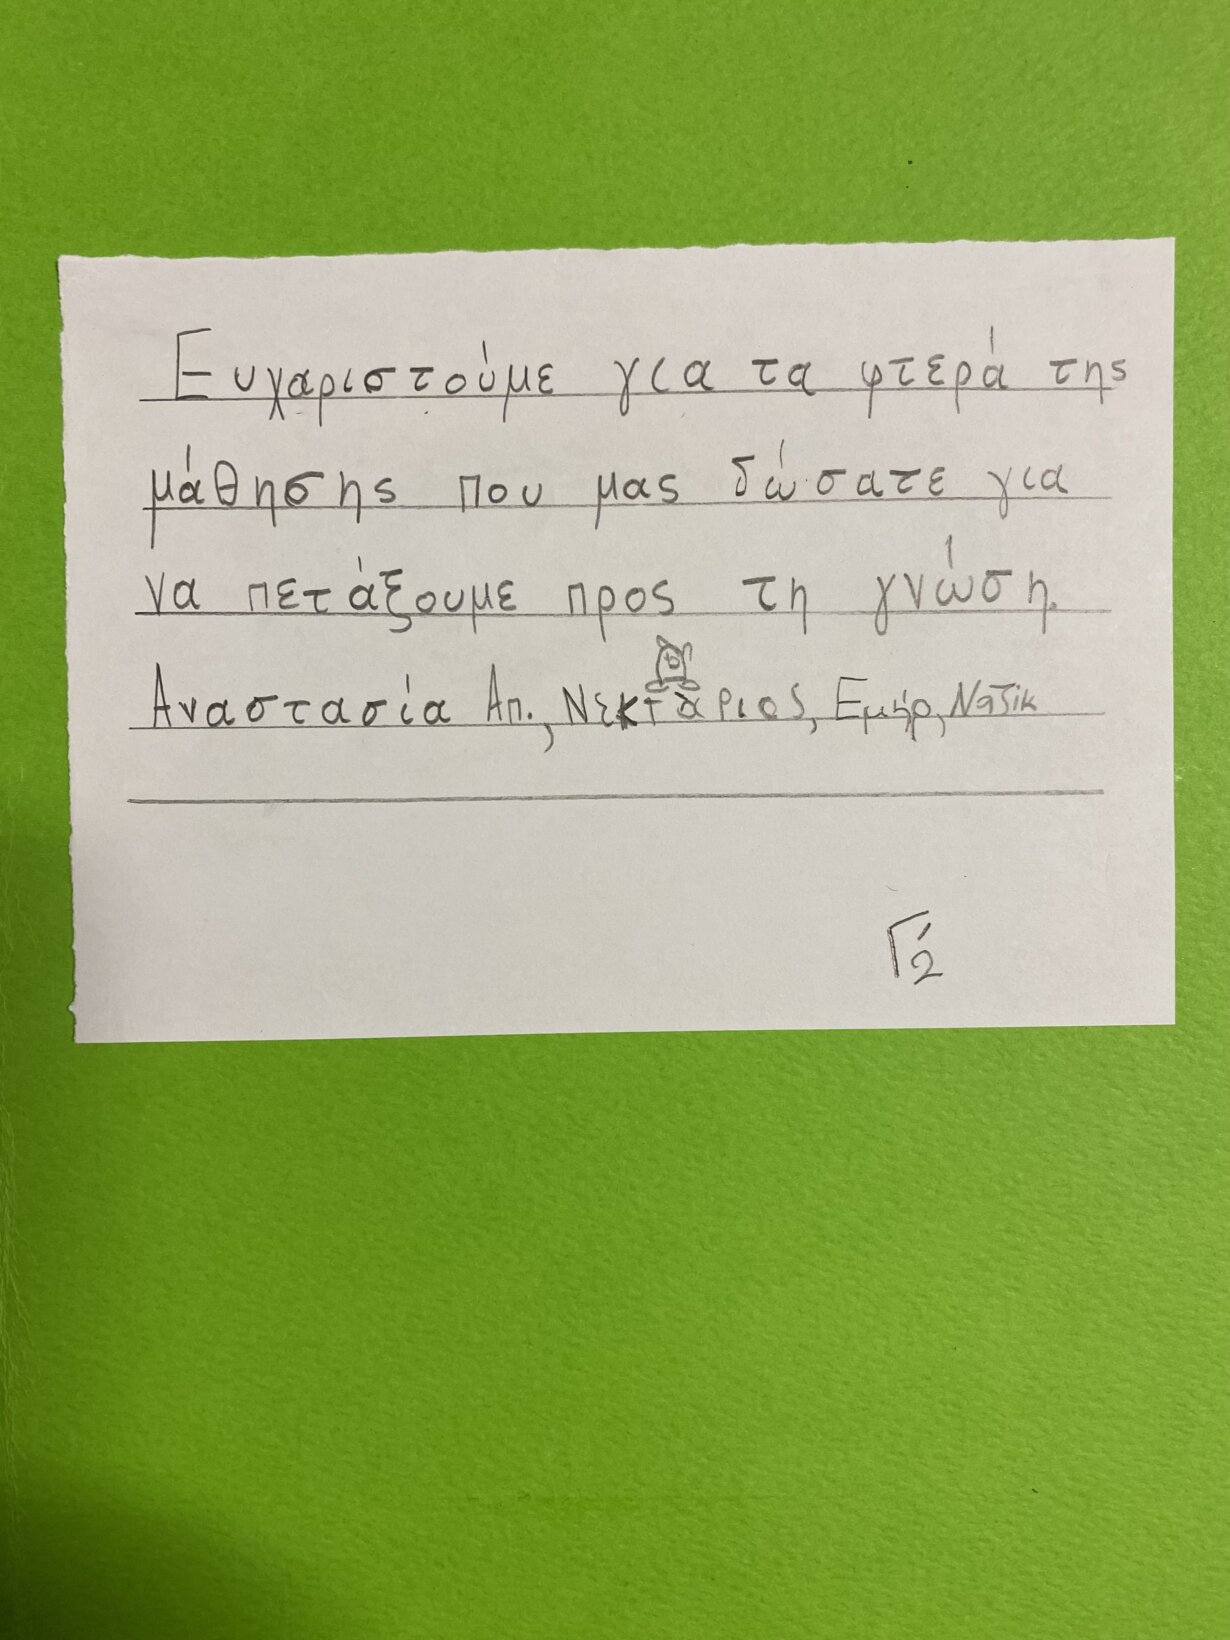 Ευχαριστούμε για τα φτερά της
μάθησης που μας δώσατε για
να πετάξουμε προς τη γνώση.
Αναστασία Απ., Νεκτάριος, Εμήρ, Ναζίκ
Γ΄2